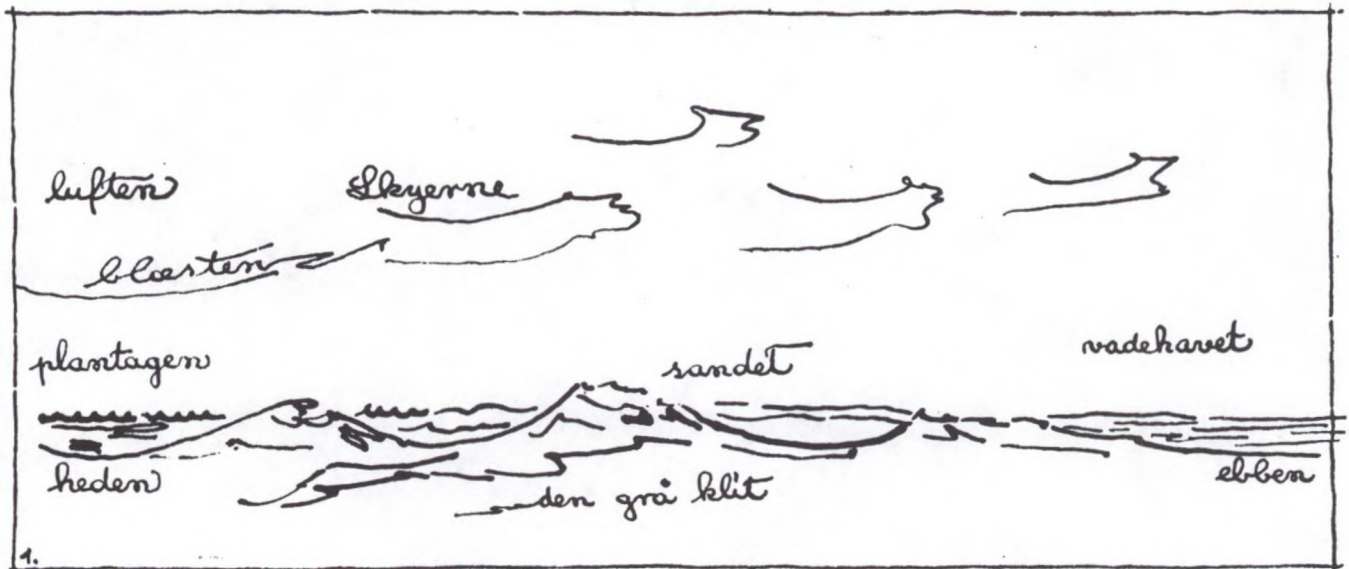 luften
Skyerne
blæsten
plantagen
sandet
vadehavet
heden
den grå klit
ebben
1.